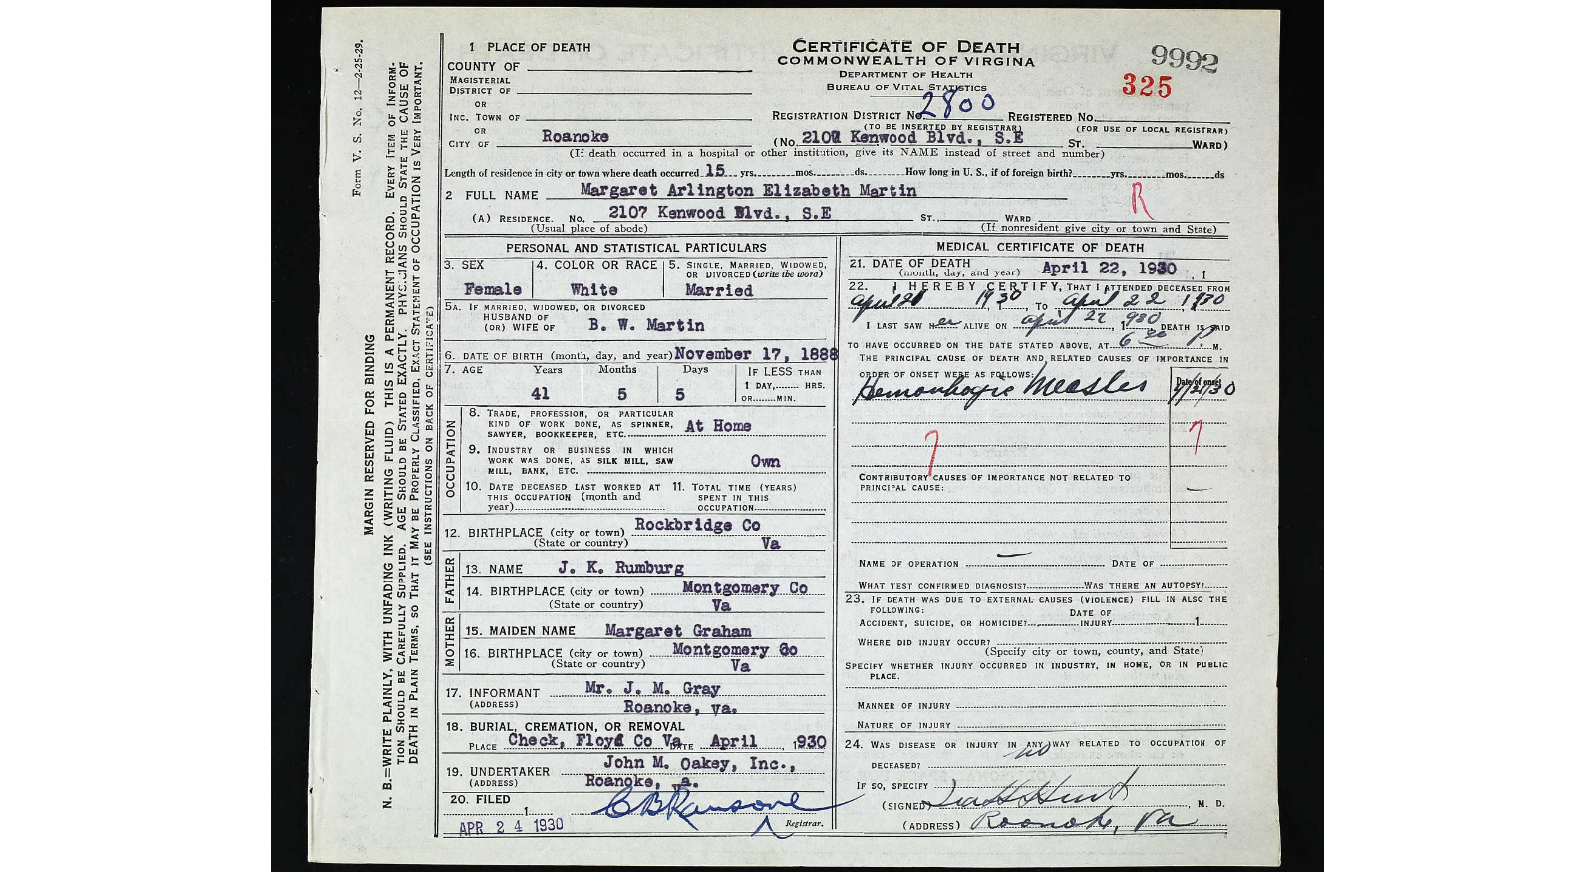 Form V. S. No. 12—2-25-29.
MARGIN RESERVED FOR BINDING
N. B.—WRITE PLAINLY, WITH UNFADING INK (WRITING FLUID) THIS IS A PERMANENT RECORD. EVERY ITEM OF INFORM-
TION SHOULD BE CAREFULLY SUPPLIED. AGE SHOULD BE STATED EXACTLY. PHYSICIANS SHOULD STATE THE CAUSE OF
DEATH IN PLAIN TERMS, SO THAT IT MAY BE PROPERLY CLASSIFIED. EXACT STATEMENT OF OCCUPATION IS VERY IMPORTANT.
(SEE INSTRUCTIONS ON BACK OF CERTIFICATE)
CERTIFICATE OF DEATH
COMMONWEALTH OF VIRGINIA
DEPARTMENT OF HEALTH
BUREAU OF VITAL STATISTICS
9992
325
1 PLACE OF DEATH
COUNTY OF
MAGISTERIAL
DISTRICT OF
OR
INC. TOWN OF
OR
CITY OF Roanoke
REGISTRATION DISTRICT No. 2800 REGISTERED No.
(TO BE INSERTED BY REGISTRAR) (FOR USE OF LOCAL REGISTRAR)
(No. 2107 Kenwood Blvd., S.E ST. WARD)
(If death occurred in a hospital or other institution, give its NAME instead of street and number)
Length of residence in city or town where death occurred 15 yrs. mos. ds. How long in U. S., if of foreign birth? yrs. mos. ds
2 FULL NAME Margaret Arlington Elizabeth Martin
R
(A) RESIDENCE. No. 2107 Kenwood Blvd., S.E ST., WARD
(Usual place of abode) (If nonresident give city or town and State)
PERSONAL AND STATISTICAL PARTICULARS
3. SEX 4. COLOR OR RACE 5. SINGLE, MARRIED, WIDOWED,
OR DIVORCED (write the word)
Female White Married
5A. IF MARRIED, WIDOWED, OR DIVORCED
HUSBAND OF
(OR) WIFE OF B. W. Martin
6. DATE OF BIRTH (month, day, and year) November 17, 1888
7. AGE Years Months Days IF LESS THAN
1 DAY, HRS.
41 5 5 OR MIN.
OCCUPATION
8. TRADE, PROFESSION, OR PARTICULAR
KIND OF WORK DONE, AS SPINNER,
SAWYER, BOOKKEEPER, ETC. At Home
9. INDUSTRY OR BUSINESS IN WHICH
WORK WAS DONE, AS SILK MILL, SAW
MILL, BANK, ETC. Own
10. DATE DECEASED LAST WORKED AT 11. TOTAL TIME (YEARS)
THIS OCCUPATION (month and SPENT IN THIS
year) OCCUPATION
12. BIRTHPLACE (city or town) Rockbridge Co
(State or country) Va
FATHER
13. NAME J. K. Rumburg
14. BIRTHPLACE (city or town) Montgomery Co
(State or country) Va
MOTHER
15. MAIDEN NAME Margaret Graham
16. BIRTHPLACE (city or town) Montgomery Co
(State or country) Va
17. INFORMANT Mr. J. M. Gray
(ADDRESS) Roanoke, va.
18. BURIAL, CREMATION, OR REMOVAL
PLACE Check, Floyd Co Va DATE April , 1930
19. UNDERTAKER John M. Oakey, Inc.,
(ADDRESS) Roanoke, a.
20. FILED
1 C B Ransone
APR 24 1930 Registrar.
MEDICAL CERTIFICATE OF DEATH
21. DATE OF DEATH
(month, day, and year) April 22, 1930 , 1
22. I HEREBY CERTIFY, THAT I ATTENDED DECEASED FROM
April 21 1930, TO April 22, 1930
I LAST SAW Her ALIVE ON April 22 1930, DEATH IS SAID
TO HAVE OCCURRED ON THE DATE STATED ABOVE, AT 6 P. M.
THE PRINCIPAL CAUSE OF DEATH AND RELATED CAUSES OF IMPORTANCE IN
ORDER OF ONSET WERE AS FOLLOWS: Date of onset
Hemorrhagic Measles 4/21/30
7 7
CONTRIBUTORY CAUSES OF IMPORTANCE NOT RELATED TO
PRINCIPAL CAUSE: —
NAME OF OPERATION — DATE OF
WHAT TEST CONFIRMED DIAGNOSIS? WAS THERE AN AUTOPSY?
23. IF DEATH WAS DUE TO EXTERNAL CAUSES (VIOLENCE) FILL IN ALSO THE
FOLLOWING: DATE OF
ACCIDENT, SUICIDE, OR HOMICIDE? INJURY 1
WHERE DID INJURY OCCUR?
(Specify city or town, county, and State)
SPECIFY WHETHER INJURY OCCURRED IN INDUSTRY, IN HOME, OR IN PUBLIC
PLACE.
MANNER OF INJURY
NATURE OF INJURY
24. WAS DISEASE OR INJURY IN ANY WAY RELATED TO OCCUPATION OF
DECEASED? no
IF SO, SPECIFY
(SIGNED) Hurt, M. D.
(ADDRESS) Roanoke, Va